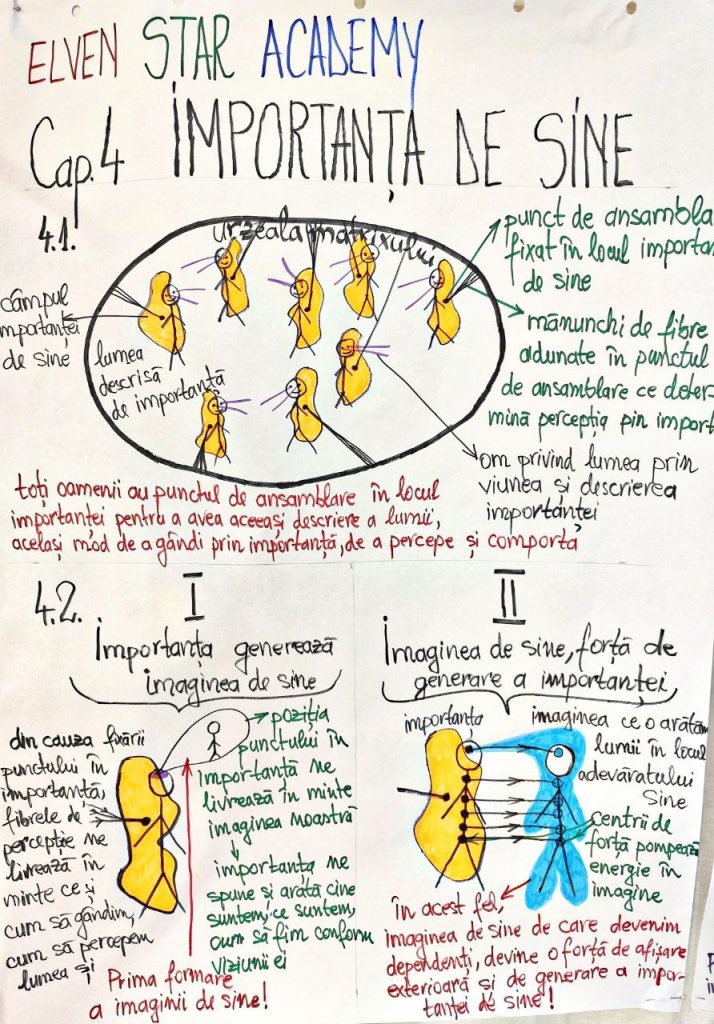 ELVEN STAR ACADEMY
Cap. 4 IMPORTANȚA DE SINE
4.1.
urzeala matrixului
punct de ansambla
fixat în locul importan
de sine
câmpul
mportanței
de sine
lumea
descrisă
de importanță
mănunchi de fibre
adunate în punctul
de ansamblare ce deter-
mină percepția pin import
om privind lumea prin
viunea și descrierea
importanței
toți oamenii au punctul de ansamblare în locul
importanței pentru a avea aceeași descriere a lumii,
același mod de a gândi prin importanță, de a percepe și comporta
4.2.
I
Importanța generează
imaginea de sine
din cauza fixării
punctului în
importanță,
fibrele de
percepție ne
livrează în
minte ce și
cum să gândim,
cum să percepem
lumea și
poziția
punctului în
importanță ne
livrează în minte
imaginea noastră
importanța ne
spune și arată cine
suntem, ce suntem,
cum să fim conform
viziunii ei
Prima formare
a imaginii de sine!
II
Imaginea de sine, forță de
generare a importanței
importanța
imaginea ce o arătăm
lumii în locul
adevăratului
Sine
centrii de
forță pompează
energie în
imagine
în acest fel,
imaginea de sine de care devenim
dependenți, devine o forță de afișare
exterioară și de generare a impor-
tanței de sine!